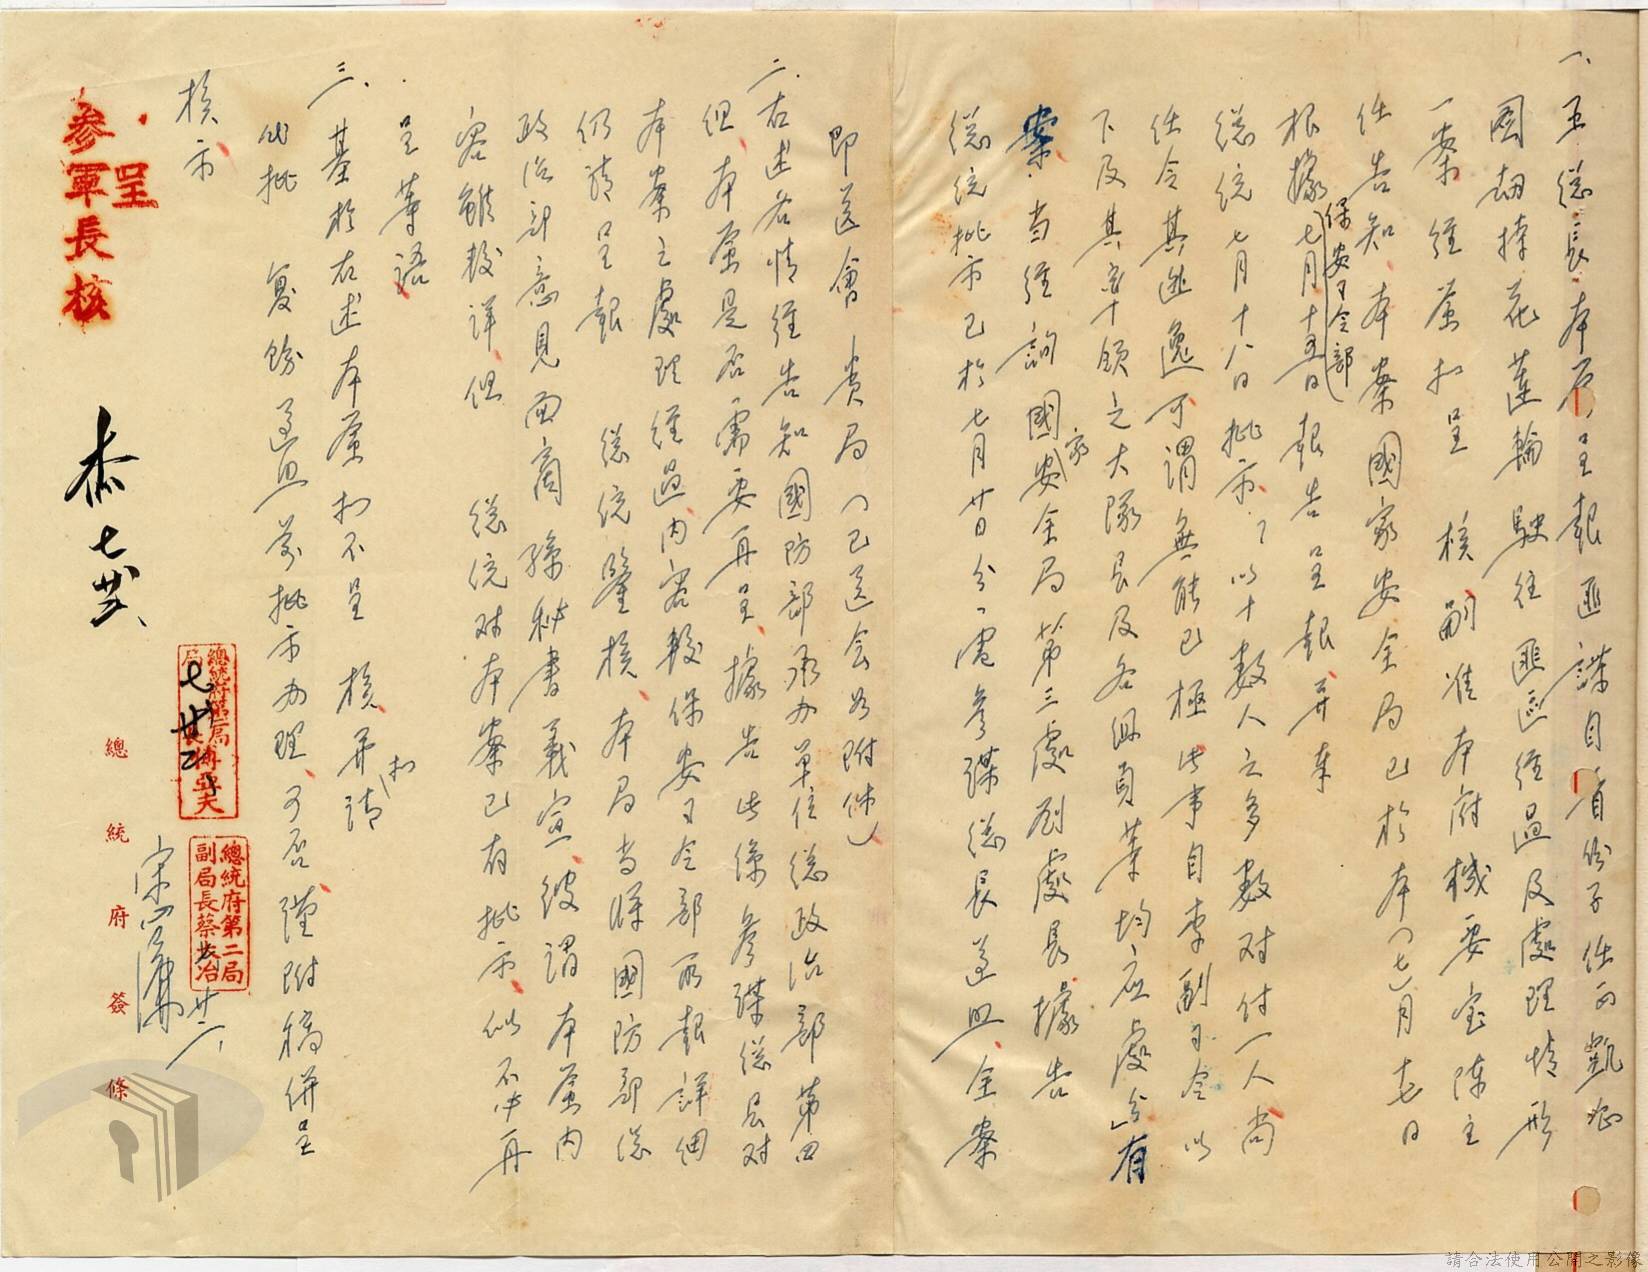 一、王總長本府呈報匪諜自首份子任西凱等
圖劫持花蓮輪駛往匪區經過及處理情形
一案經簽扣呈　核嗣准本府機要室陳主
任告知本案國家安全局已於本(七)月十七日
根據(保安司令部)七月十五日報告呈報并奉
總統七月十八日批示「以十數人之多數對付一人尚
任令其逃逸可謂無能已極此事自李副司令以
下及其率領之大隊長及各組員等均應處分」有
案當經詢國家安全局第三處劉處長據告
總統批示已於七月廿日分電參謀總長遵照全案
即送會　貴局(已送會如附件)
二、右述各情經告知國防部承办單位總政治部第四
組本案是否需要再呈據告此係參謀總長对
本案之處理經過內容較保安司令部所報詳細
仍請呈報　總統鑒核本局当將國防部總
政治部意見面商孫秘書義宣彼謂本案內
容雖較詳但　總統对本案已有批示似不必再
呈等語
三、基於右述本案扣不呈　核并請
代批　復飭遵照前批示办理可否謹附稿併呈
核示
呈
參軍長核
總統府第二局
局長傅亞夫
七廿二
總統府第二局
副局長蔡
廿二
總統府簽條